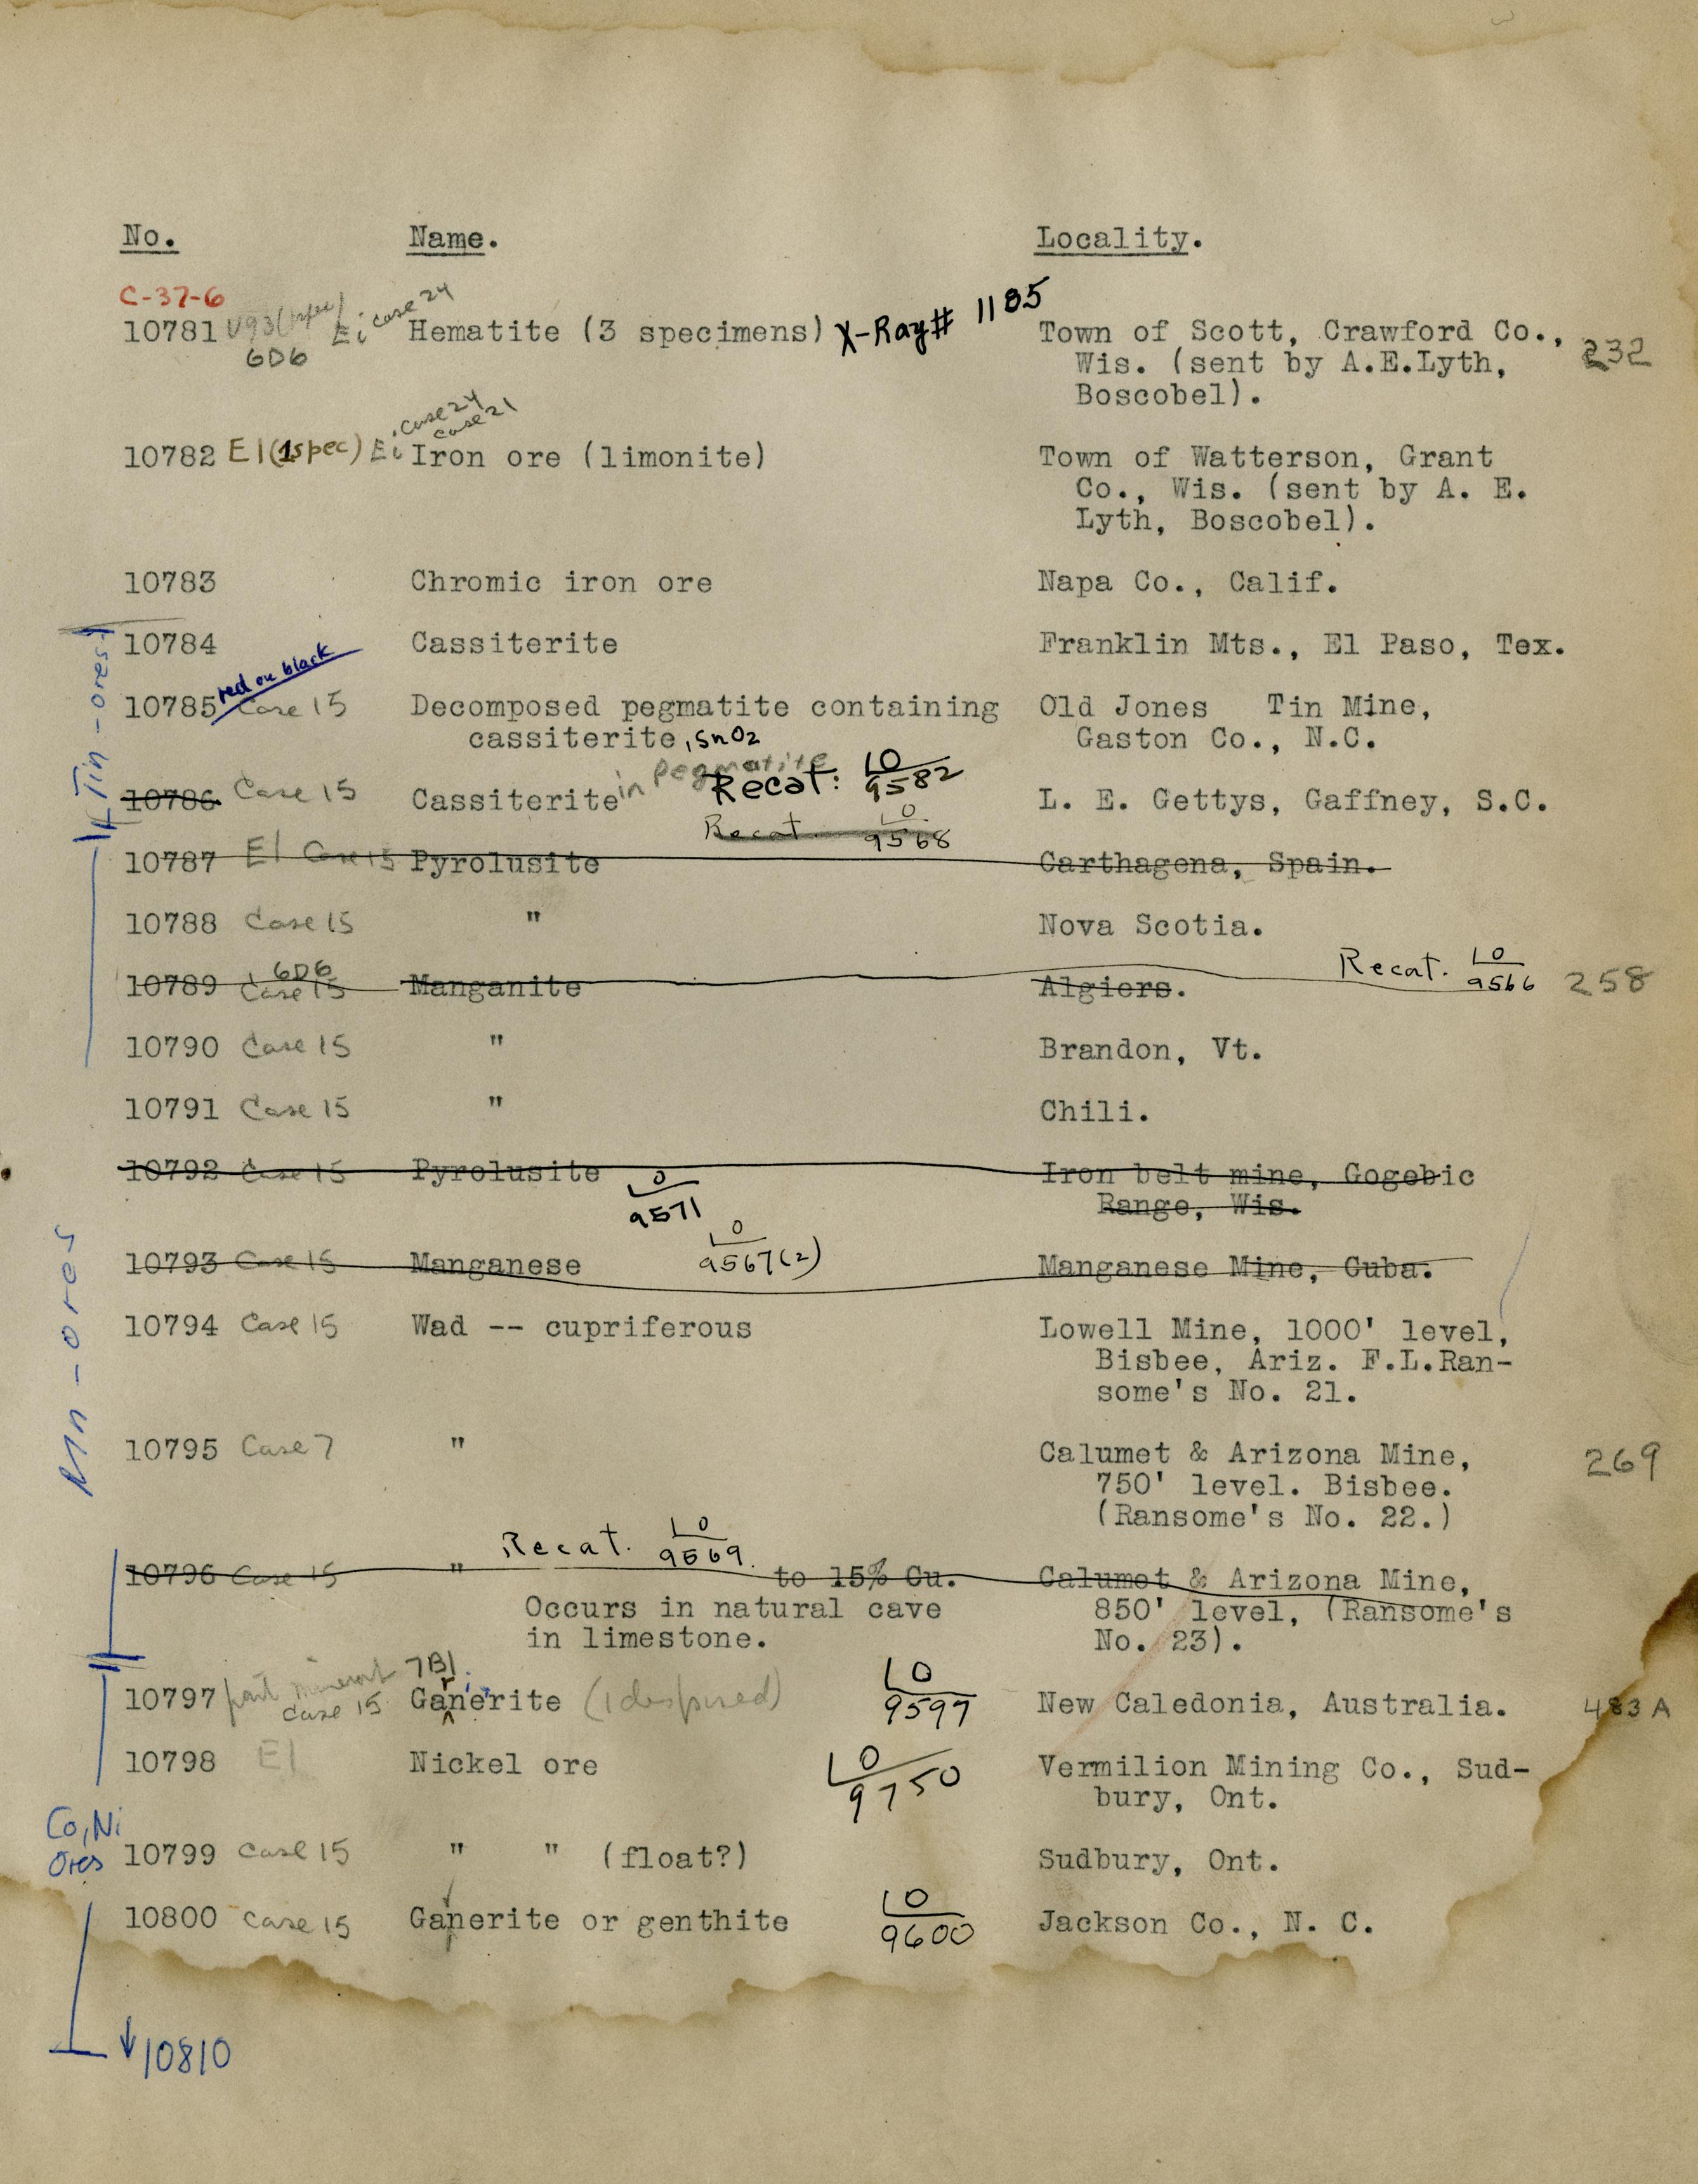 No. Name. Locality.
C-37-6
case 24
10781 Ei Hematite (3 specimens) X-Ray# 1185 Town of Scott, Crawford Co., 232
6D6 Wis. (sent by A.E.Lyth,
Boscobel).
case 24
case 21
10782 E1 (1spec) Ei Iron ore (limonite) Town of Watterson, Grant
Co., Wis. (sent by A. E.
Lyth, Boscobel).
10783 Chromic iron ore Napa Co., Calif.
10784 Cassiterite Franklin Mts., El Paso, Tex.
red on black
10785 Case 15 Decomposed pegmatite containing Old Jones Tin Mine,
cassiterite, SnO2 Gaston Co., N.C.
10786 Case 15 Cassiterite in pegmatite Recat: LO/9582 L. E. Gettys, Gaffney, S.C.
Recat. LO/9568
10787 E1 Case 15 Pyrolusite Carthagena, Spain.
10788 Case 15 " Nova Scotia.
6D6
10789 Case 15 Manganite Algiers. Recat. LO/9566 258
10790 Case 15 " Brandon, Vt.
10791 Case 15 " Chili.
10792 Case 15 Pyrolusite Iron belt mine, Gogebic
LO/9571 Range, Wis.
10793 Case 15 Manganese LO/9567(2) Manganese Mine, Cuba.
10794 Case 15 Wad -- cupriferous Lowell Mine, 1000' level,
Bisbee, Ariz. F.L.Ran-
some's No. 21.
10795 Case 7 " Calumet & Arizona Mine, 269
750' level. Bisbee.
(Ransome's No. 22.)
Recat. LO/9569.
10796 Case 15 " to 15% Cu. Calumet & Arizona Mine,
Occurs in natural cave 850' level, (Ransome's
in limestone. No. 23).
7B1
10797 Case 15 Ganerite LO/9597 New Caledonia, Australia. 483 A
r i
10798 E1 Nickel ore LO/9750 Vermilion Mining Co., Sud-
bury, Ont.
10799 Case 15 " " (float?) Sudbury, Ont.
10800 Case 15 Ganerite or genthite LO/9600 Jackson Co., N. C.
Tin-ores
Mn-ores
Co, Ni
Ores
↓10810